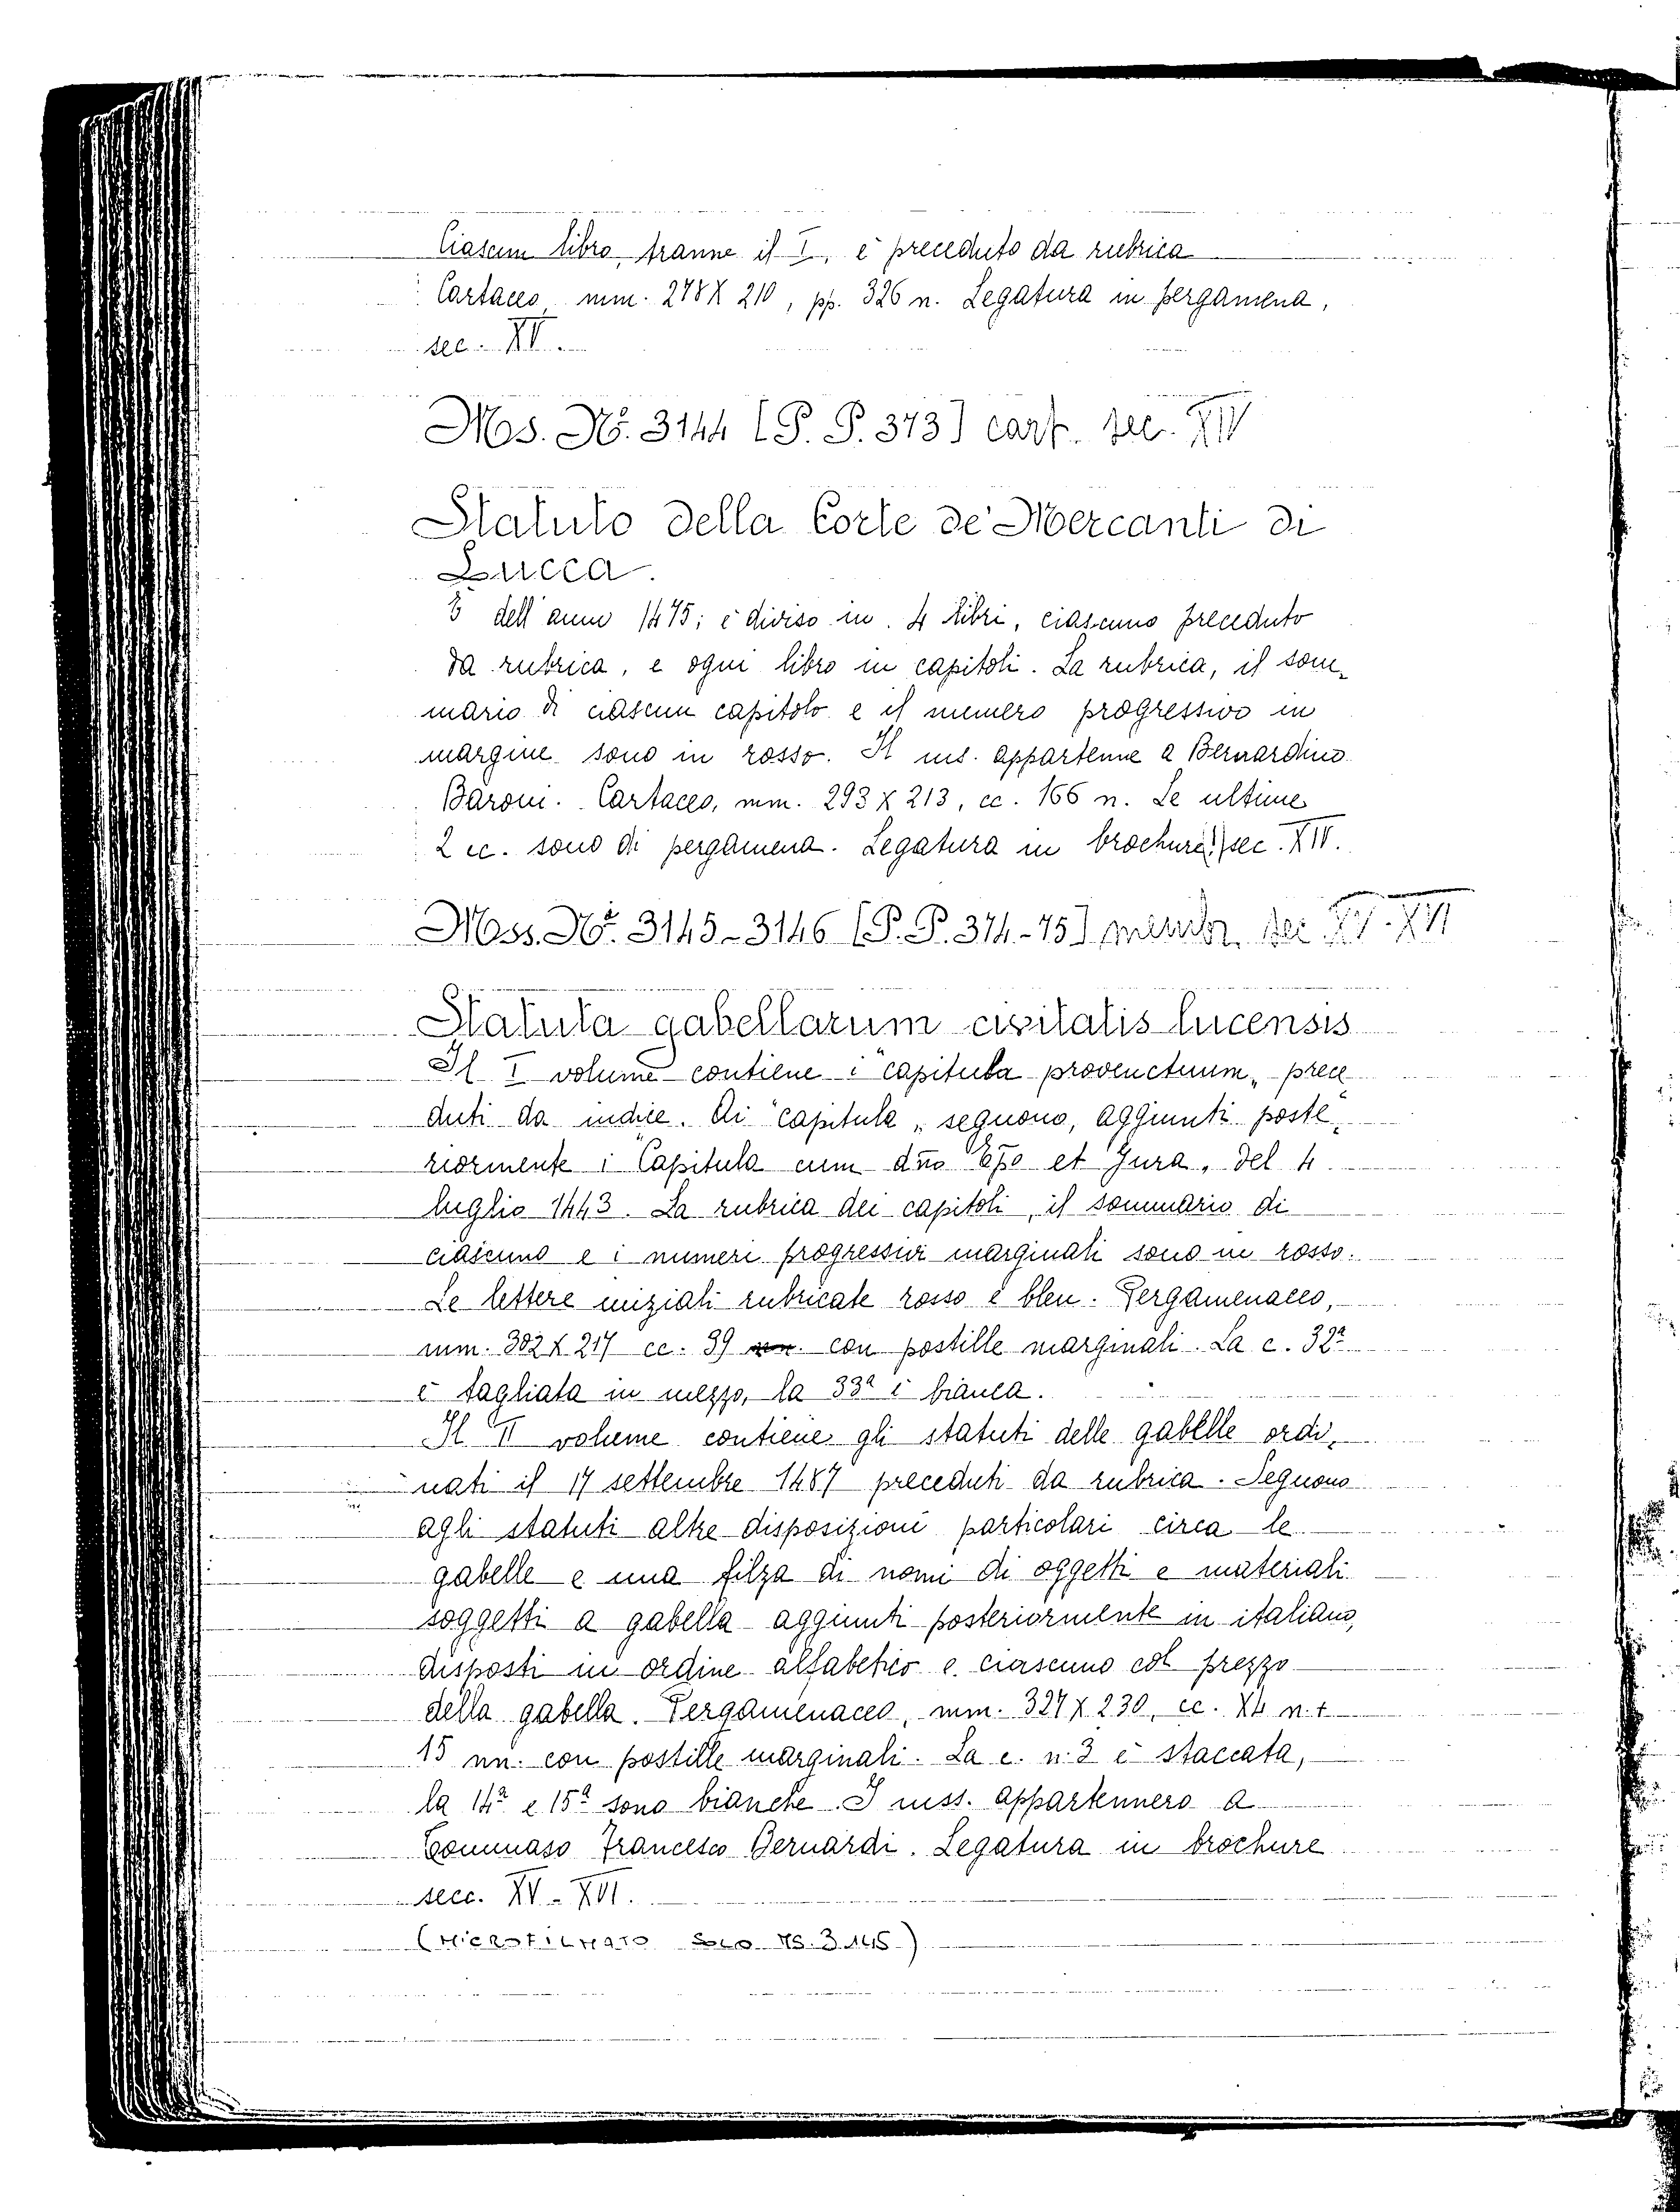 Ciascun libro, tranne il I, è preceduto da rubrica
Cartaceo mm. 278 X 210, pp. 326 n. Legatura in pergamena,
sec. XV.
Ms. No. 3144 [P. P. 373] cart. sec. XIV
Statuto della Corte de' Mercanti di
Lucca.
È dell'anno 1475; è diviso in 4 libri, ciascuno preceduto
da rubrica, e ogni libro in capitoli. La rubrica, il som-
mario di ciascun capitolo e il numero progressivo in
margine sono in rosso. Il ms. appartenne a Bernardino
Baroni. Cartaceo, mm. 293 X 213, cc. 166 n. Le ultime
2 cc. sono di pergamena. Legatura in brochure, sec. XIV.
Mss. No. 3145-3146 [P. P. 374-75] membr. sec XV-XVI
Statuta gabellarum civitatis lucensis
Il I volume contiene i "capitula provenctuum„ prece
duti da indice. Ai "capitula„ seguono, aggiunti poste-
riormente i "Capitula cum dño Epo et Jura„ del 4
luglio 1443. La rubrica dei capitoli, il sommario di
ciascuno e i numeri progressivi marginali sono in rosso.
Le lettere iniziali rubricate rosso e bleu. Pergamenaceo,
mm. 302 X 217 cc. 39 con postille marginali. La c. 32ª
è tagliata in mezzo, la 33ª è bianca.
Il II volume contiene gli statuti delle gabelle ordi-
nati il 17 settembre 1487 preceduti da rubrica. Seguono
agli statuti altre disposizioni particolari circa le
gabelle e una filza di nomi di oggetti e materiali
soggetti a gabella aggiunti posteriormente in italiano,
disposti in ordine alfabetico e ciascuno col prezzo
della gabella. Pergamenaceo, mm. 327 X 230, cc. n. +
15 nn. con postille marginali. La c. n. 3 è staccata,
la 14ª e 15ª sono bianche. I mss. appartennero a
Tommaso Francesco Bernardi. Legatura in brochure
secc. XV-XVI.
(MICROFILMATO SOLO MS. 3145)